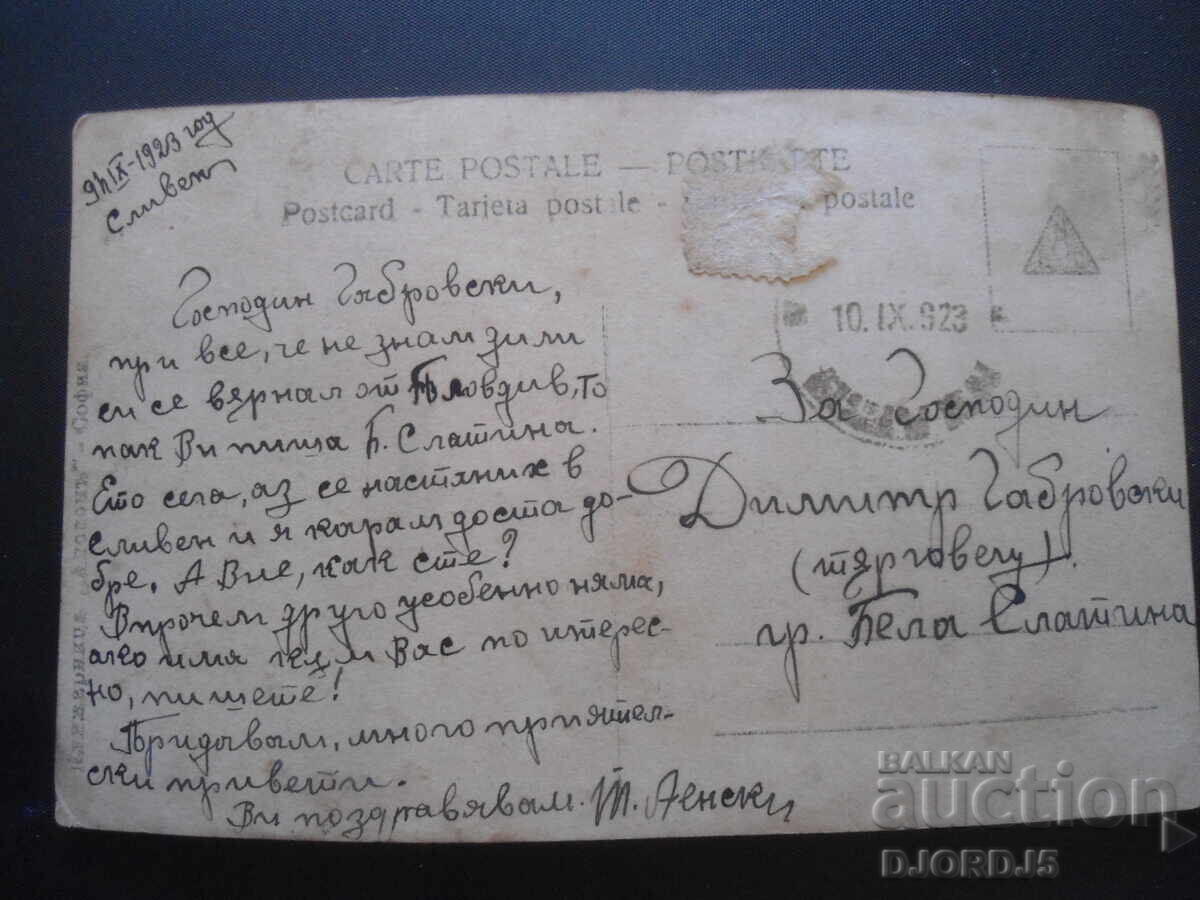 9/IX-1923 год
Сливен
CARTE POSTALE — POSTKARTE
Postcard - Tarjeta postale - postale
10.IX.923
Господин Габровски,
при все, че не знам дали
си се вярнал от Пловдив, то
пак Ви пиша Б. Слатина.
Ето сега, аз се настаних в
Сливен и я карам доста до-
бре. А Вие, как сте?
Впрочем друго усобенно няма,
ако има към Вас по интерес-
но, пишете!
Придавам, много приятел-
ски привети.
Ви поздравявам.
За Господин
Димитр Габровски
(търговец).
гр. Бела Слатина
КНИЖАРНИЦА - СОФИЯ
BALKAN
auction
DJORDJ5